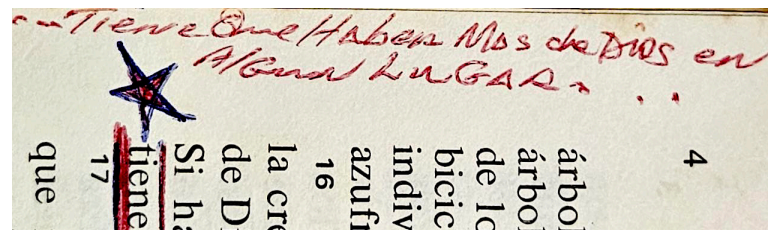 ...Tiene Que Haber Mas de Dios en
Algun LUGAR...
4
árbol
árbol
de lo
bicic
indiv
azufr
16
la cre
de D
Si ha
tiene
17
que